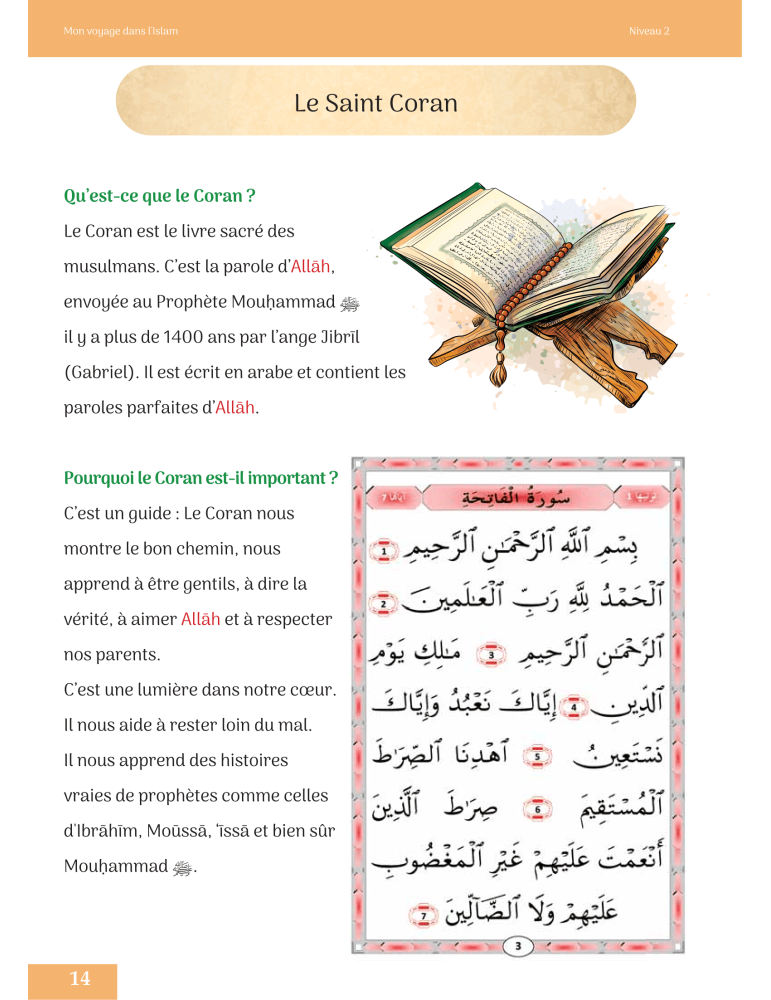 Mon voyage dans l'Islam
Niveau 2
Le Saint Coran
Qu’est-ce que le Coran ?
Le Coran est le livre sacré des
musulmans. C’est la parole d’Allāh,
envoyée au Prophète Mouḥammad ﷺ
il y a plus de 1400 ans par l’ange Jibrīl
(Gabriel). Il est écrit en arabe et contient les
paroles parfaites d’Allāh.
Pourquoi le Coran est-il important ?
C’est un guide : Le Coran nous
montre le bon chemin, nous
apprend à être gentils, à dire la
vérité, à aimer Allāh et à respecter
nos parents.
C’est une lumière dans notre cœur.
Il nous aide à rester loin du mal.
Il nous apprend des histoires
vraies de prophètes comme celles
d'Ibrāhīm, Moūssā, ‘īssā et bien sûr
Mouḥammad ﷺ.
ترتيبها 1 سُورَةُ الْفَاتِحَةِ آياتها 7
بِسْمِ ٱللَّهِ ٱلرَّحْمَٰنِ ٱلرَّحِيمِ 1
ٱلْحَمْدُ لِلَّهِ رَبِّ ٱلْعَٰلَمِينَ 2
ٱلرَّحْمَٰنِ ٱلرَّحِيمِ 3 مَٰلِكِ يَوْمِ
ٱلدِّينِ 4 إِيَّاكَ نَعْبُدُ وَإِيَّاكَ
نَسْتَعِينُ 5 ٱهْدِنَا ٱلصِّرَٰطَ
ٱلْمُسْتَقِيمَ 6 صِرَٰطَ ٱلَّذِينَ
أَنْعَمْتَ عَلَيْهِمْ غَيْرِ ٱلْمَغْضُوبِ
عَلَيْهِمْ وَلَا ٱلضَّآلِّينَ 7
3
14